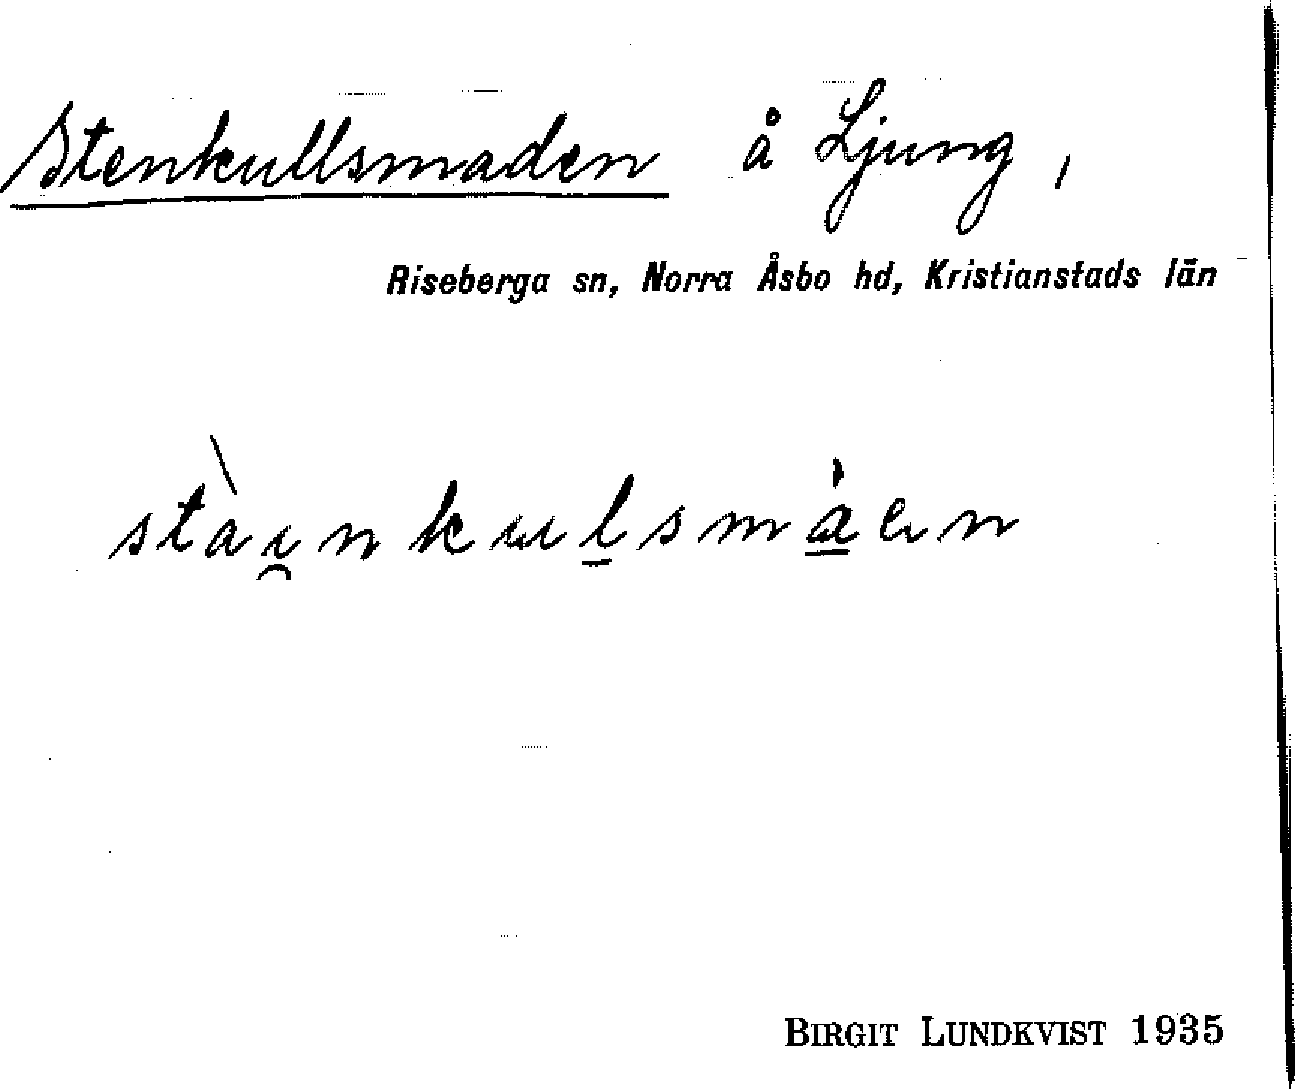 Stenkullsmaden å Ljung,
Riseberga sn, Norra Åsbo hd, Kristianstads län
stài̯nkul̲smà̲en
BIRGIT LUNDKVIST 1935